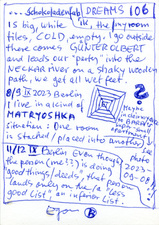 ...schokoladenfab. DREAMS 106
is big, white the pny room
files, COLD, empty. I go outside
there comes GÜNTER OLBERT
and leads our "party" into the
NECKAR river on a shaky wooden
path, we get all wet feet
8/9 IX 2023 Berlin
I live in a kind of
MATRYOSHKA
situation: One room
is stached / placed into another
11/12 IX Berlin Even though
the person (me!?) is doing
"good things / deeds", that person
lands only on the / a "less
good list", an inferior list.
2
photo
2023